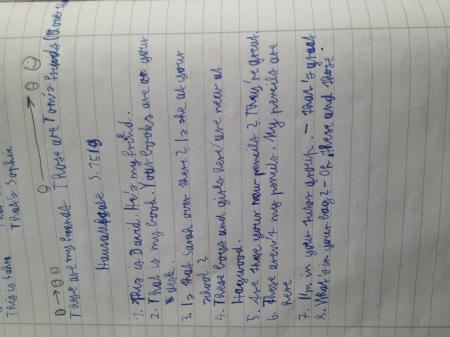 This is Sara
That's Sophie
These are my friends Those are Tom's friends
S. 15
1. This is David. He's my friend.
2. That is my book. Your books are on your
desk.
3. Is that Sarah over there? Is she at your
school?
4. These boys and girls here are new at
Haywood.
5. Are those your new pencils? They're great.
6. These aren't my pencils. My pencils are
here
7. I'm in your tutor group. - That's great
8. What's in your bag? - Oh, these and those.